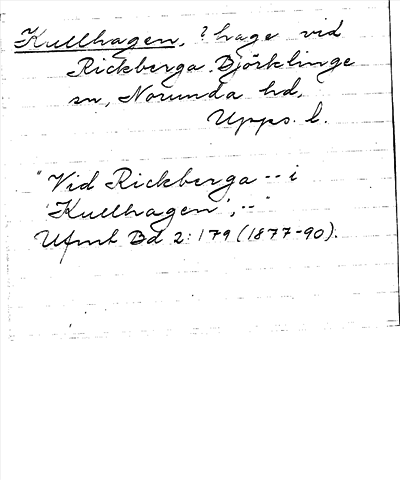 Kullhagen, ? hage vid
Rickberga. Björklinge
sn, Norunda hd,
Upps. l.
"Vid Rickberga -- i
'Kullhagen', --"
Ufmt Bd 2:179 (1877-90).